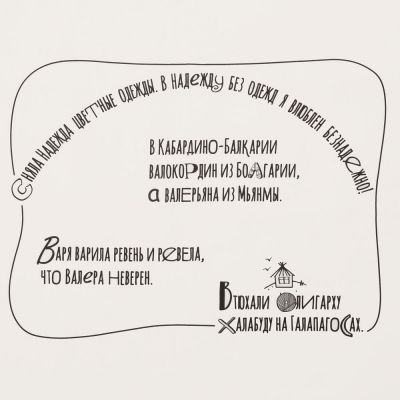 Сняла Надежда цветные одежды. В Надежду без одежд я влюблен безнадежно!
В Кабардино-Балкарии
валокордин из Боагарии,
а валерьяна из Мьянмы.
Варя варила ревень и ревела,
что Валера неверен.
Втюхали олигарху
халабуду на Галапагоссах.